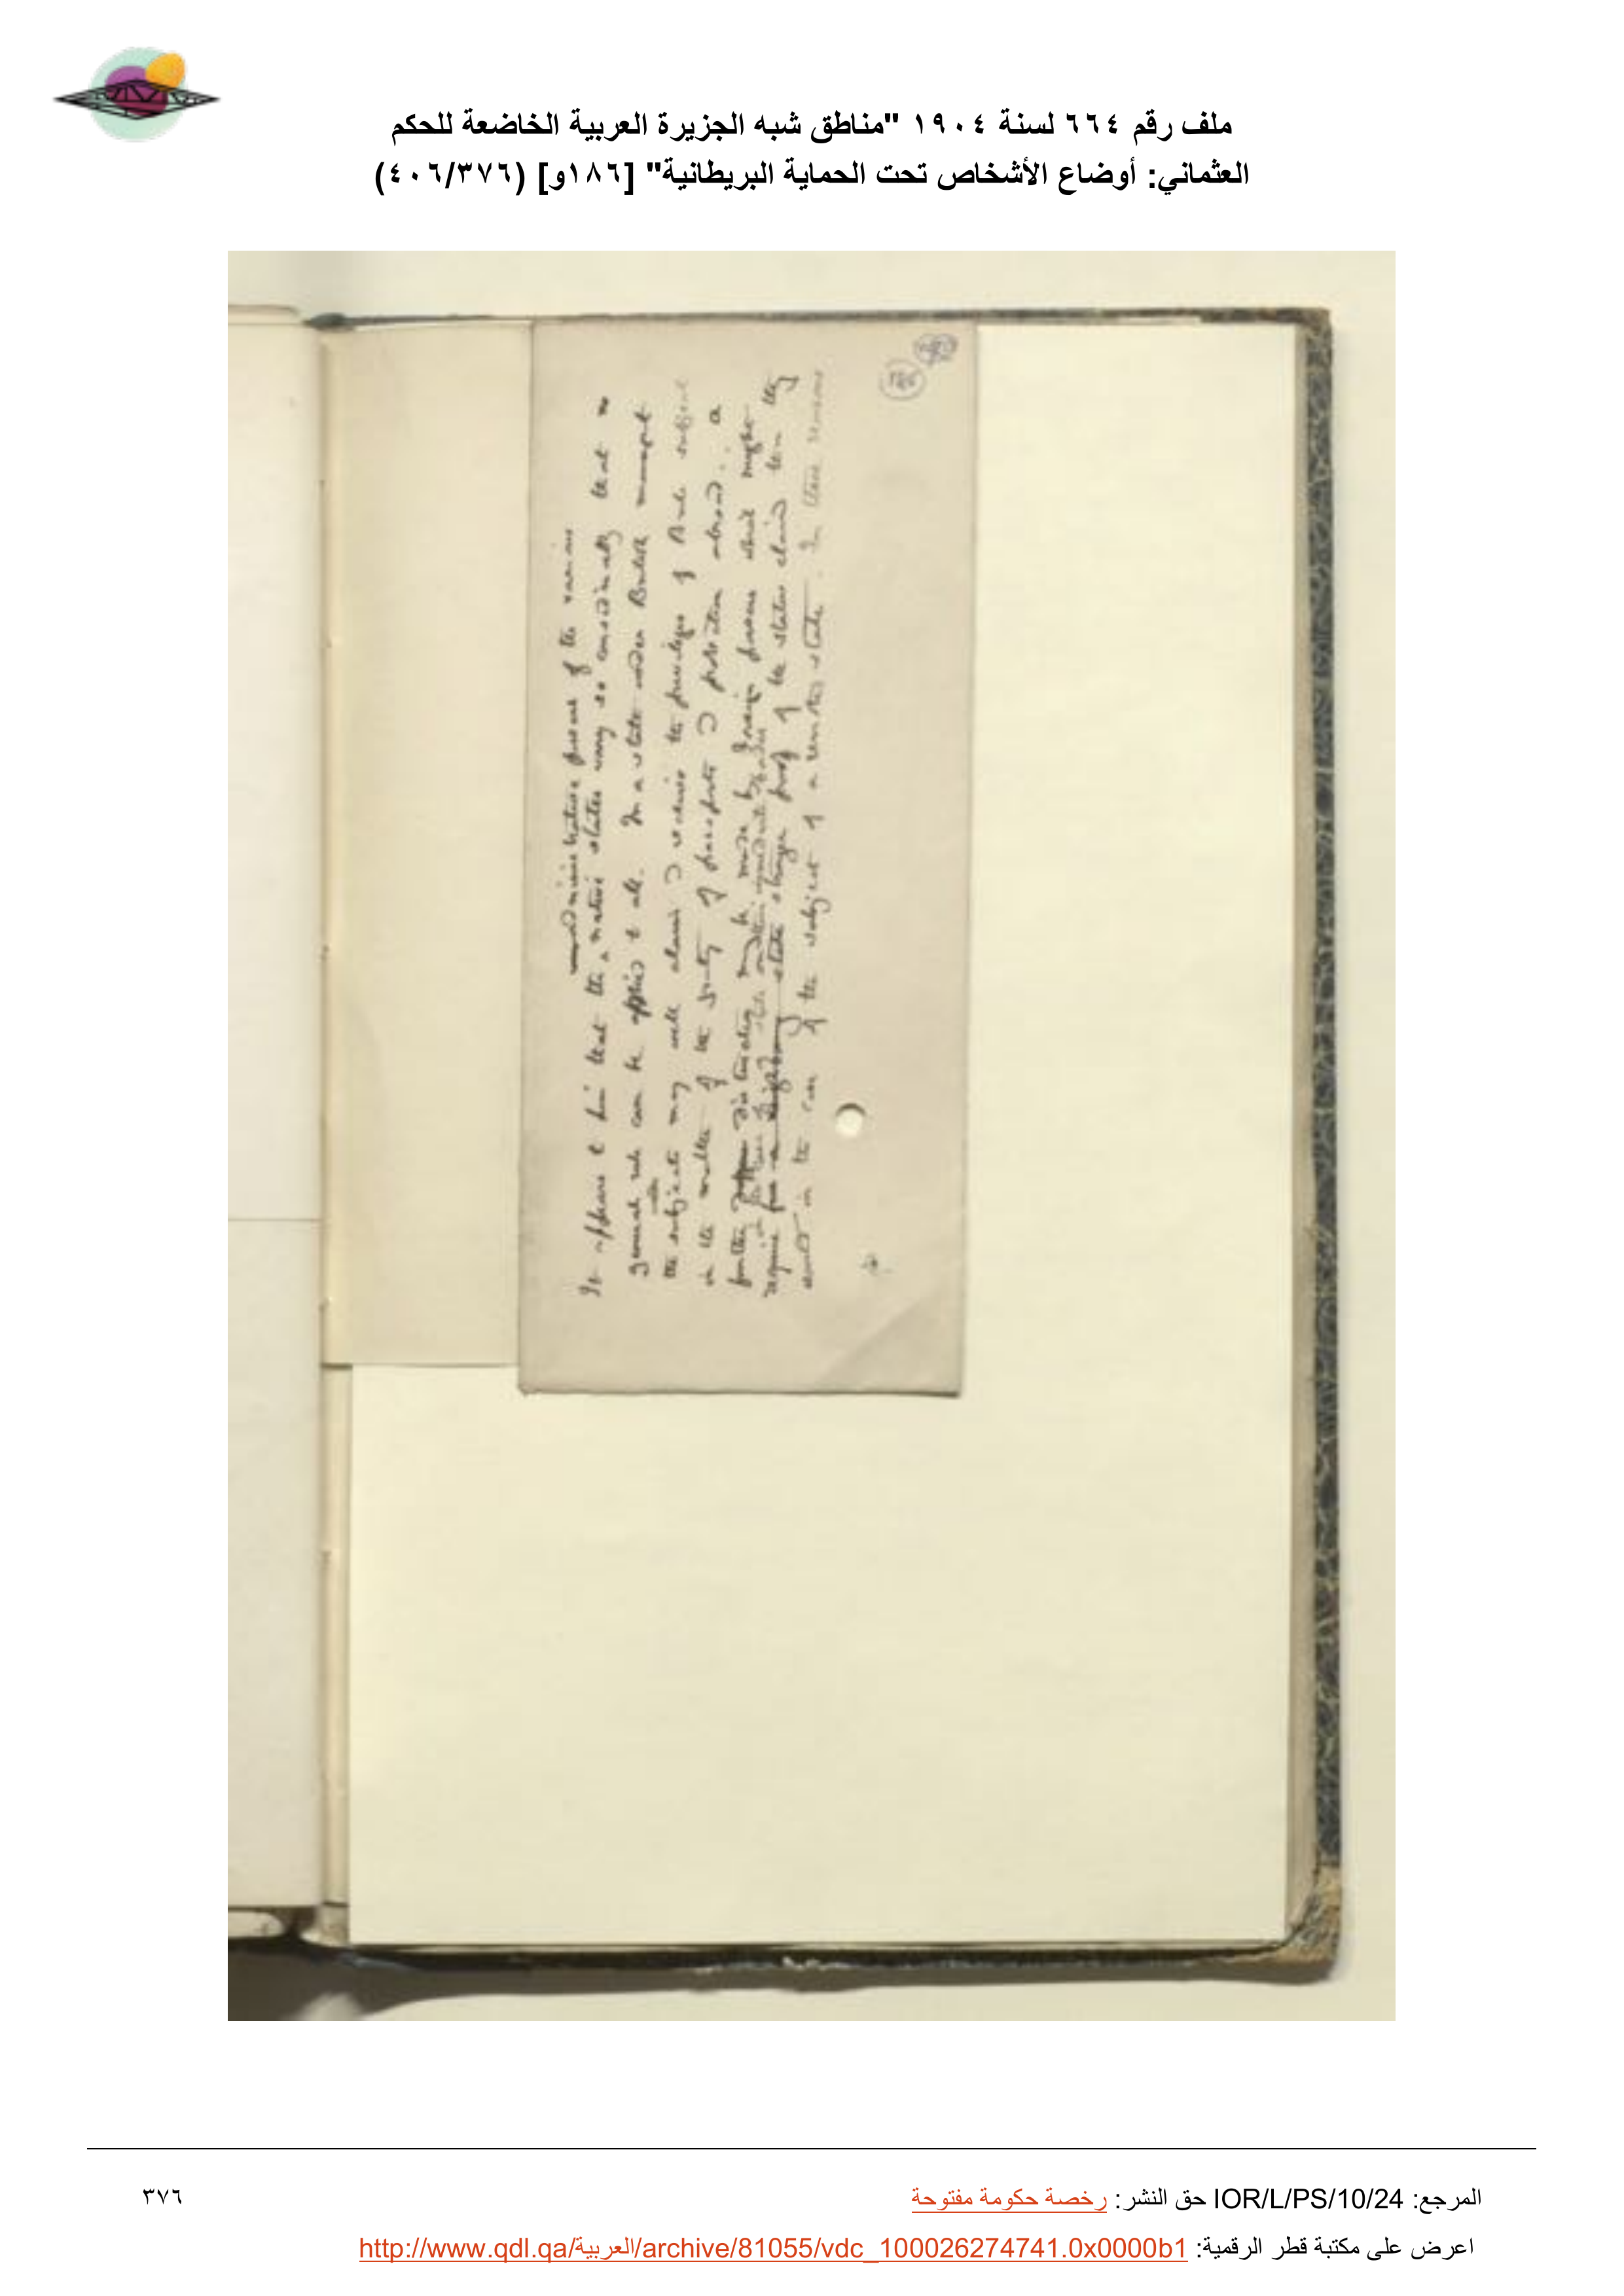 ملف رقم ٦٦٤ لسنة ١٩٠٤ "مناطق شبه الجزيرة العربية الخاضعة للحكم
العثماني: أوضاع الأشخاص تحت الحماية البريطانية" [١٨٦و] (٤٠٦/٣٧٦)
186
administrative powers of the various
It appears to him that the native states vary so considerably that no
general rule can be applied to all. In a state under British managmt
the subjects may well claim & receive the privileges of British subject
in the matter of the grantg of passports & protection abroad. a
further distinction may be made by foreign powers which might
require stronger proof of the status claimed than they
would in the case of the subject of a remoter state. In these
المرجع: IOR/L/PS/10/24 حق النشر: رخصة حكومة مفتوحة
٣٧٦
اعرض على مكتبة قطر الرقمية: http://www.qdl.qa/العربية/archive/81055/vdc_100026274741.0x0000b1